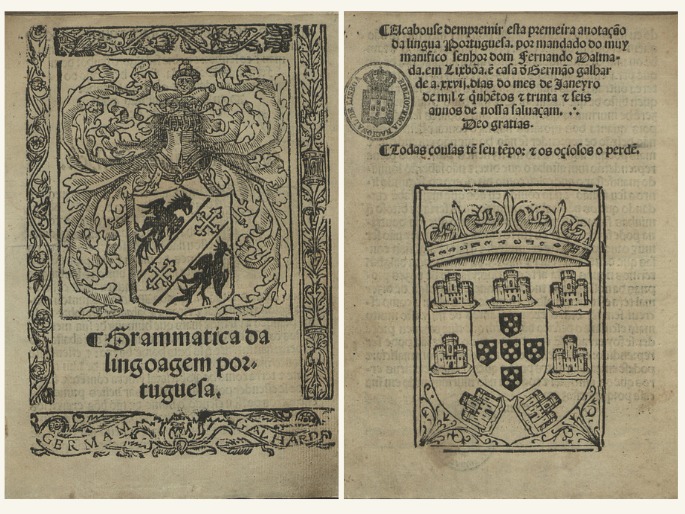 Grammatica da
lingoagem por-
tuguesa.
GERMAM GALHARDE
Acabouse dempremir esta premeira anotação
da lingua Portuguesa, por mandado do muy
manifico senhor dom Fernando Dalma-
da, em Lixbõa, ẽ casa õ Germão galhar
de a .xxvij. dias do mes de Janeyro
de mil ⁊ qͥnhẽtos ⁊ trinta ⁊ seis
annos de nossa saluaçam. ∴
Deo gratias.
Todas cousas tẽ seu tẽpo: ⁊ os oçiosos o perdẽ.